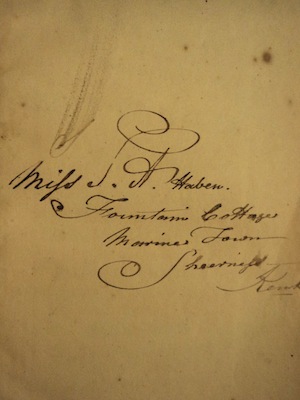 Miss S. A. Haben.
Fountain Cottage
Marine Town
Sheerness
Kent